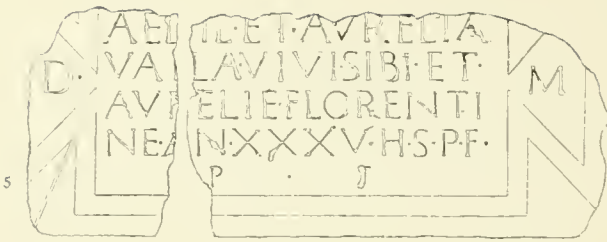 AEL IL·ET·AVRELIA
D· VA LAVIVISIBI·ET· M
AVR ELIEFLORENTI
NEA N·XXXV·H·S·P·F·
5 P · T